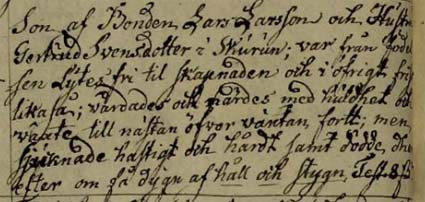 Son af Bonden Lars Larsson och Hustru
Gertrud Svensdotter i Skurun; var från föde
sen Lytes fri til skapnaden och i öfrigt fri
likaså; vårdades och närdes med huldhet och
växte till nästan öfver väntan fortt; men
sjuknade hastigt och hårdt samt dödde
efter om få dygn af håll och stygn,